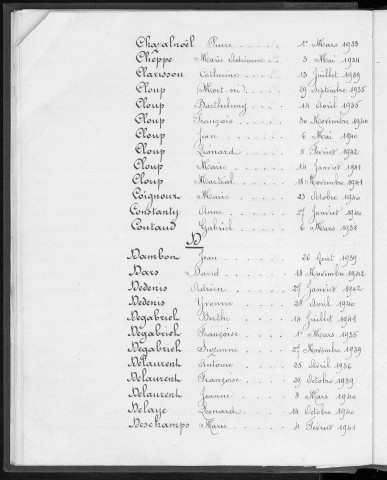 Chazalnoël Pierre 1er Mars 1933
Cheppe Marie Adrienne 3 Mai 1934
Clarissou Catherine 13 Juillet 1939
Cloup (Mort-né) 29 Septembre 1935
Cloup Barthélemy 14 Août 1935
Cloup François 30 Novembre 1940
Cloup Jean 6 Mai 1940
Cloup Léonard 5 Février 1942
Cloup Marie 14 Janvier 1941
Cloup Martial 18 Novembre 1941
Coignoux Marie 23 Octobre 1940
Constanty Anne 27 Janvier 1940
Coutaud Gabriel 6 Mars 1938
D
Dambon Jean 26 Août 1939
Dars David 18 Novembre 1942
Dédenis Adrien 27 Janvier 1942
Dédenis Yvonne 28 Avril 1940
Dégabriel Berthe 14 Juillet 1941
Dégabriel Françoise 1er Mars 1935
Dégabriel Suzanne 27 Novembre 1939
Délaurent Antoine 25 Avril 1936
Delaurent Françoise 29 Octobre 1939
Delaurent Jeanne 8 Mars 1940
Delage Léonard 14 Octobre 1940
Deschamps Marie 4 Février 1941